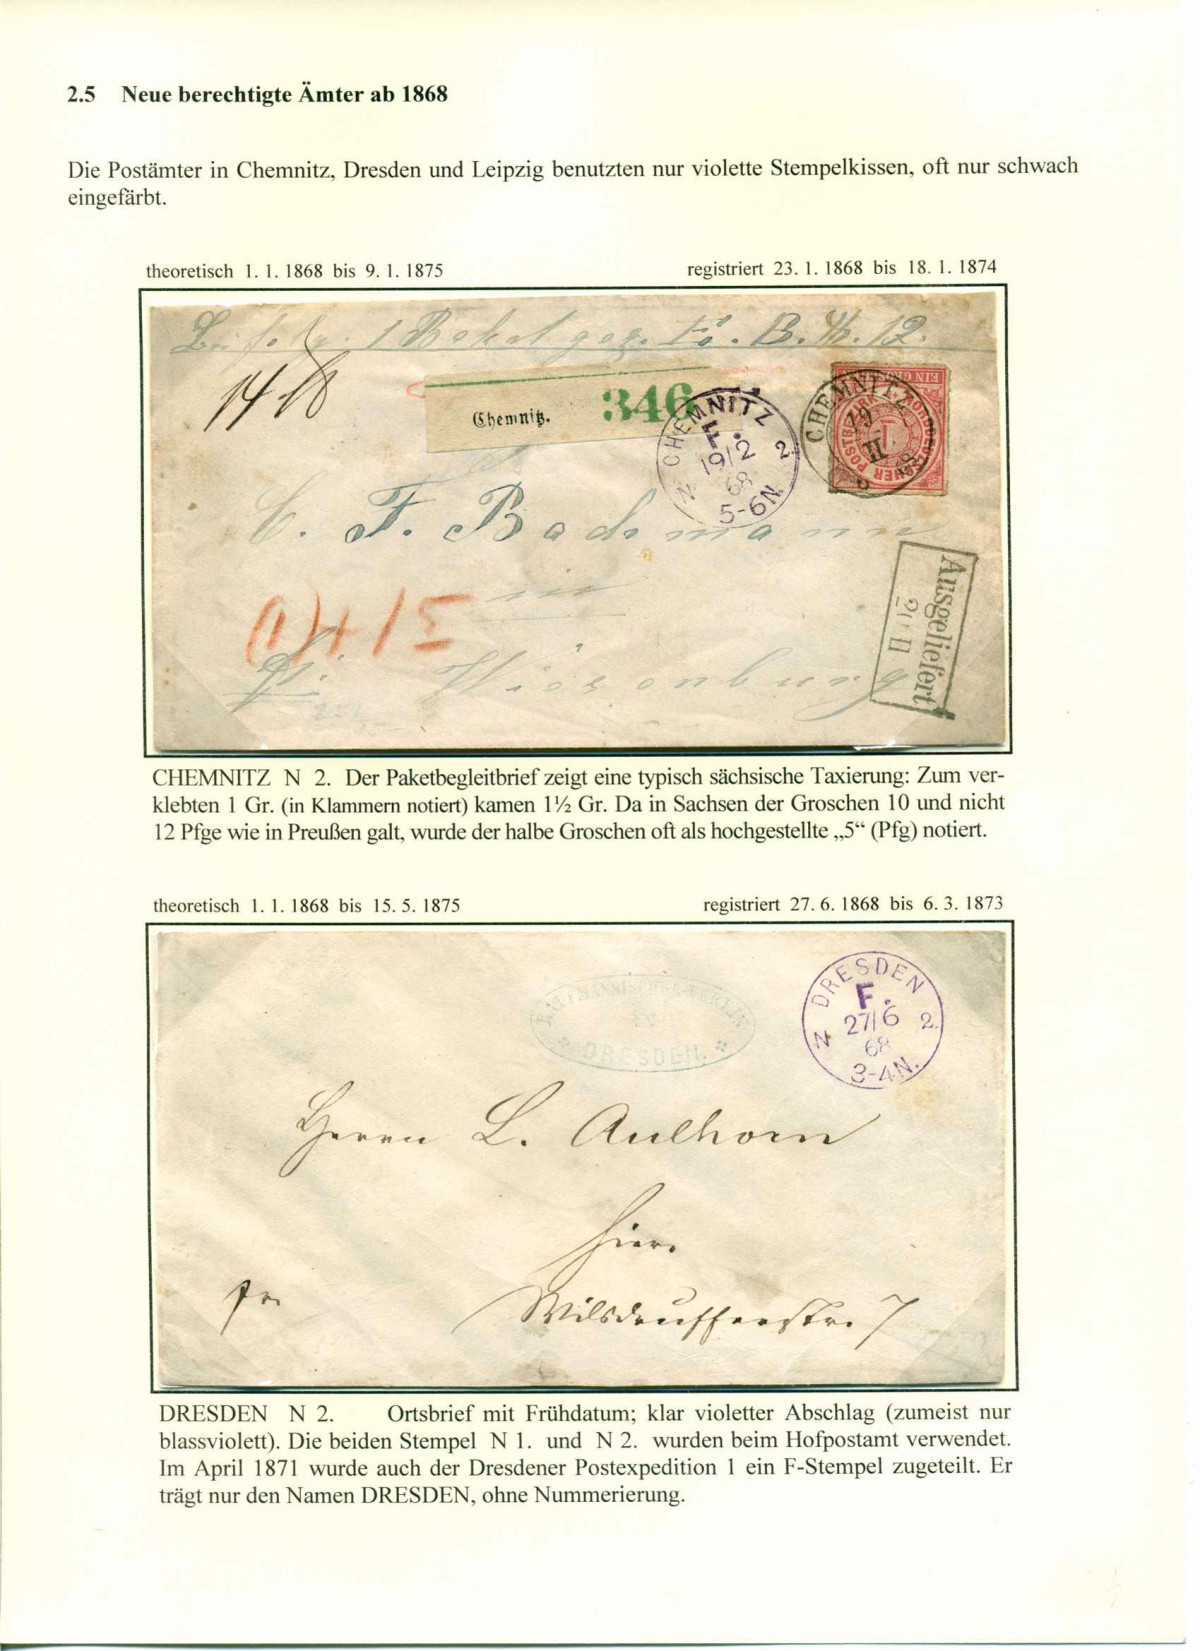 2.5 Neue berechtigte Ämter ab 1868
Die Postämter in Chemnitz, Dresden und Leipzig benutzten nur violette Stempelkissen, oft nur schwach
eingefärbt.
theoretisch 1. 1. 1868 bis 9. 1. 1875
registriert 23. 1. 1868 bis 18. 1. 1874
346
Chemnitz.
CHEMNITZ
F.
19/2
N 2.
68
5-6N.
CHEMNITZ
19
II
68
EIN GROSCHEN
NORDDEUTSCHER POSTBEZIRK
1
C. F. Bachmann
in
Wiesenburg
(1) 1 5
Ausgeliefert
20 II
CHEMNITZ N 2. Der Paketbegleitbrief zeigt eine typisch sächsische Taxierung: Zum ver-
klebten 1 Gr. (in Klammern notiert) kamen 1½ Gr. Da in Sachsen der Groschen 10 und nicht
12 Pfge wie in Preußen galt, wurde der halbe Groschen oft als hochgestellte „5“ (Pfg) notiert.
theoretisch 1. 1. 1868 bis 15. 5. 1875
registriert 27. 6. 1868 bis 6. 3. 1873
KAUFMÄNNISCHER VEREIN
DRESDEN.
DRESDEN
F.
27/6
N 2.
68
3-4N.
Herrn L. Aulhorn
hier
fr
Wilsdrufferstr. 7
DRESDEN N 2. Ortsbrief mit Frühdatum; klar violetter Abschlag (zumeist nur
blassviolett). Die beiden Stempel N 1. und N 2. wurden beim Hofpostamt verwendet.
Im April 1871 wurde auch der Dresdener Postexpedition 1 ein F-Stempel zugeteilt. Er
trägt nur den Namen DRESDEN, ohne Nummerierung.